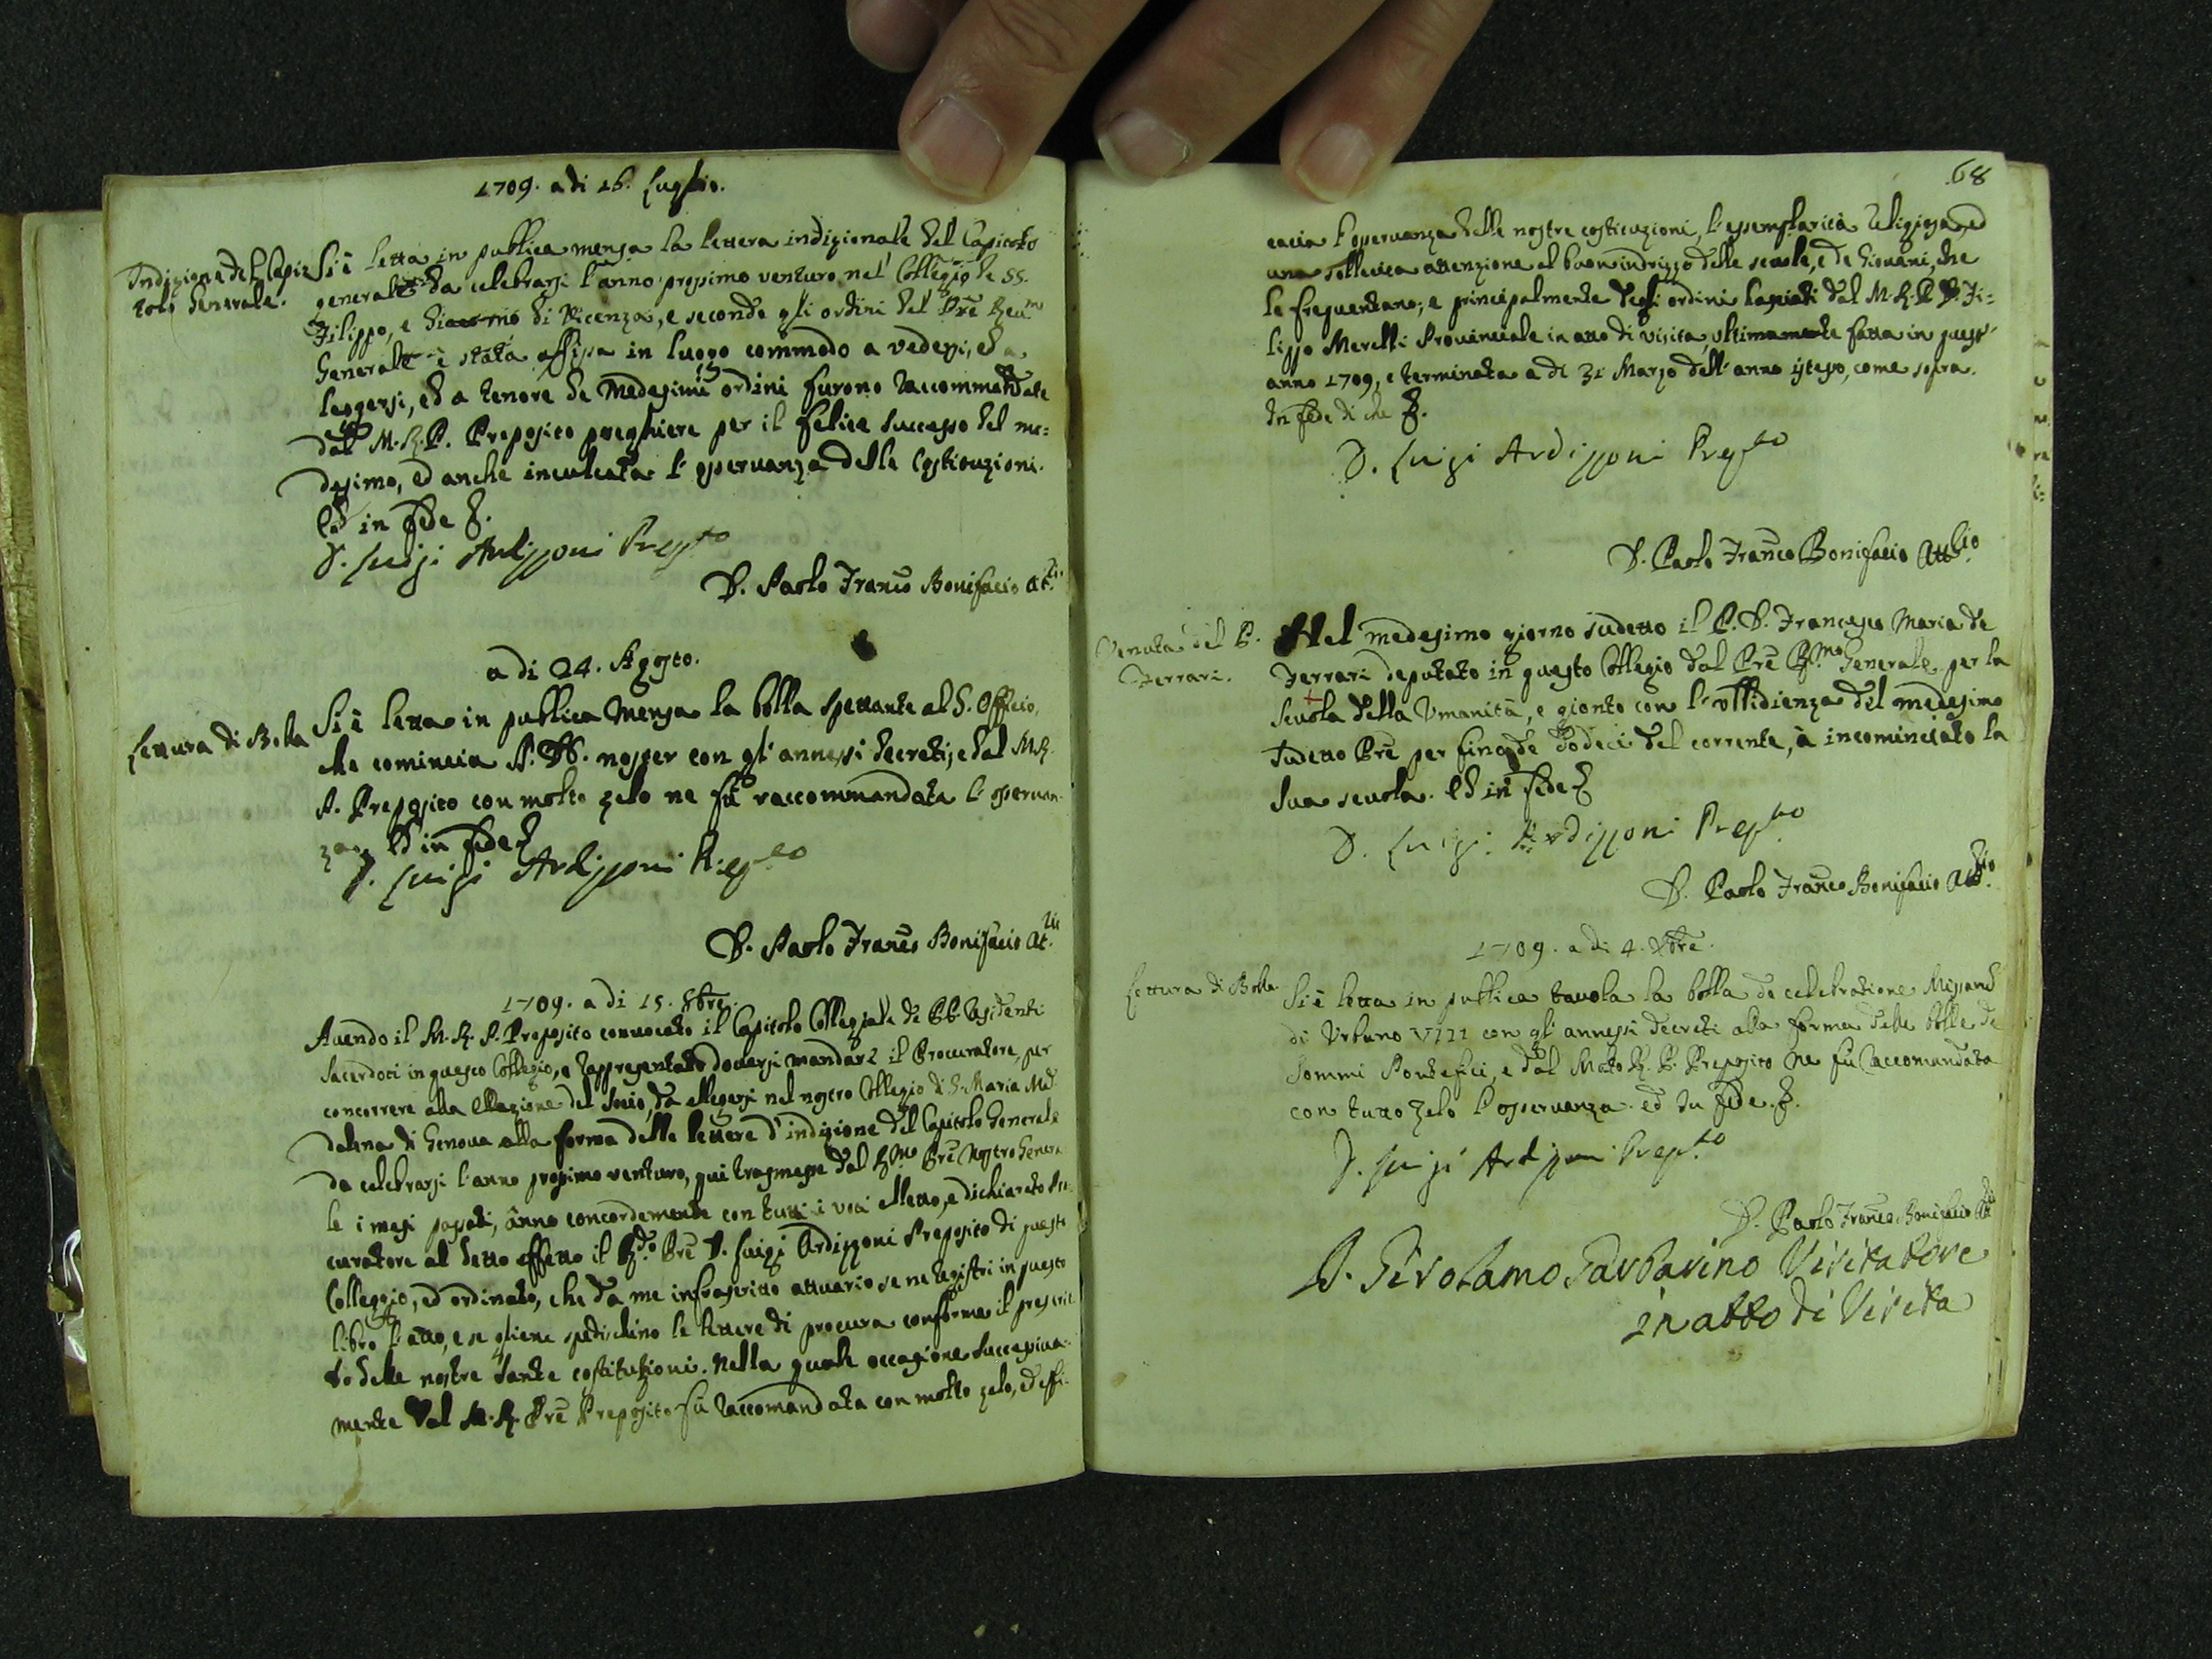 1709. a di 16. Luglio.
Indizione del Capi=
tolo Generale.
Si è letta in publica mensa la lettera indizionale del Capitolo
generale da celebrarsi l'anno prossimo venturo nel Collegio de SS.
Filippo, e Giacomo di Vicenza, e secondo gli ordini del Prē Reu.mo
Generale è stata affissa in luogo commodo a vedersi, ed a
leggersi, ed a tenore de medesimi ordini furono raccommandate
dal M.R.P. Preposito preghiere per il felice successo del me=
desimo, ed anche inculcata l'osservanza delle Costituzioni.
Ed in fede &.
D. Luigi Ardizzoni Prep.to
D. Paolo Franco Bonifacio Att.rio
a di 24. Agosto.
Lettura di Bolla
Si è letta in publica mensa la bolla spettante al S. Officio,
che comincia P. D. noster con gl'annessi decreti, e dal M.R.
P. Preposito con molto zelo ne fù raccommandata l'osservan-
za. Ed in fede &
D. Luigi Ardizzoni Prep.to
D. Paolo Franco Bonifacio Att.rio
1709. a di 15. 8bre.
Auendo il M.R.P. Preposito conuocato il Capitolo Collegiale de PP. residenti
Sacerdoti in questo Collegio, e rappresentato douersi mandare il Procuratore, per
concorrere alla ellezione del Socio, da ellegersi nel nostro Collegio di S. Maria Mad=
dalena di Genoua alla forma delle lettere d'indizione del Capitolo Generale
da celebrarsi l'anno prossimo venturo, qui trasmesse dal R.mo Prē Nostro Genera
le i mesi passati, ànno concordemente con tutti i voti elletto, e dichiarato Pro=
curatore al detto effetto il R.do Prē D. Luigi Ardizzoni Preposito di questo
Colleggio, ed ordinato, che da me infrascritto attuario se ne registri in questo
libro l'atto, e se gliene spedischino le lettere di procura conforme il prescrit
to delle nostre Sante costituzioni. Nella quale occasione successiua=
mente dal M.R. Prē Preposito fù raccomandata con molto zelo, ed effi=
68
cacia l'osservanza delle nostre costituzioni, l'essemplarità religiosa, ed
una sollecita attenzione al buon indrizzo delle scuole, e de Giovani, che
le frequentano; e principalmente degli ordini lasciati dal M.R.P.D. Fi=
lippo Merelli Prouinciale in atto di visita, ultimamente fatta in quest'
anno 1709, e terminata a di 31 Marzo dell'anno istesso, come sopra.
In fede di che &.
D. Luigi Ardizzoni Prep.to
D. Paolo Franco Bonifacio Att.rio
Venuta del P.
Ferrari.
Nel medesimo giorno sudetto il P.D. Francesco Maria de
Ferrari deputato in questo Collegio dal Prē R.mo Generale per la
Scuola della Umanità, e gionto con l'ubbidienza del medesimo
sudetto Prē per fino de dodeci del corrente, à incominciato la
sua scuola. Ed in fede &
D. Luigi Ardizzoni Prep.to
D. Paolo Franco Bonifacio Att.rio
1709. a di 4. Xbre.
Lettura di Bolla
Si è letta in publica tavola la bolla de celebratione Missarũ
di Urbano VIII con gl'annessi decreti alla forma delle bolle de
Sommi Pontefici, e dal Molto R.P. Preposito ne fù raccomandata
con tutto zelo l'osservanza. ed in fede. &.
D. Luigi Ardizzoni Prep.to
D. Paolo Franco Bonifacio Att.rio
D. Girolamo Barbarino Visitatore
in atto di Visita